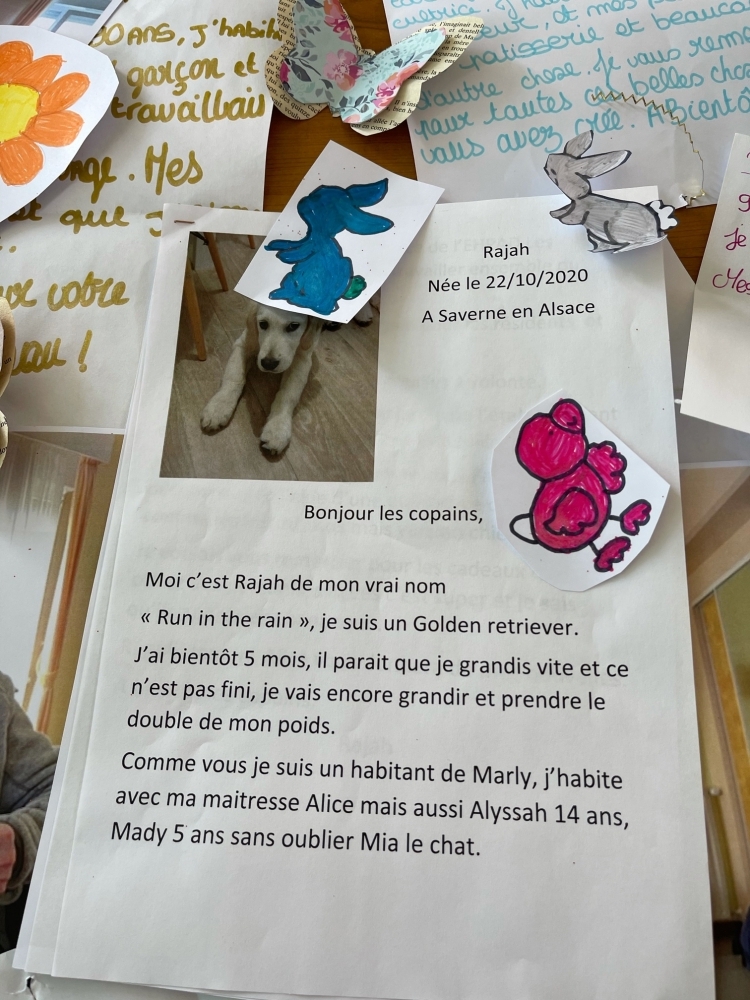 30 ANS, J'habite
garçon et
travaillais
Mes
que
votre
!
mes
pâtisserie et beaucoup
d'autre chose. Je vous
pour toutes belles choses
vous avez créé. A Bientôt
Je
Mes
Rajah
Née le 22/10/2020
A Saverne en Alsace
Bonjour les copains,
Moi c'est Rajah de mon vrai nom
« Run in the rain », je suis un Golden retriever.
J'ai bientôt 5 mois, il parait que je grandis vite et ce
n'est pas fini, je vais encore grandir et prendre le
double de mon poids.
Comme vous je suis un habitant de Marly, j'habite
avec ma maitresse Alice mais aussi Alyssah 14 ans,
Mady 5 ans sans oublier Mia le chat.